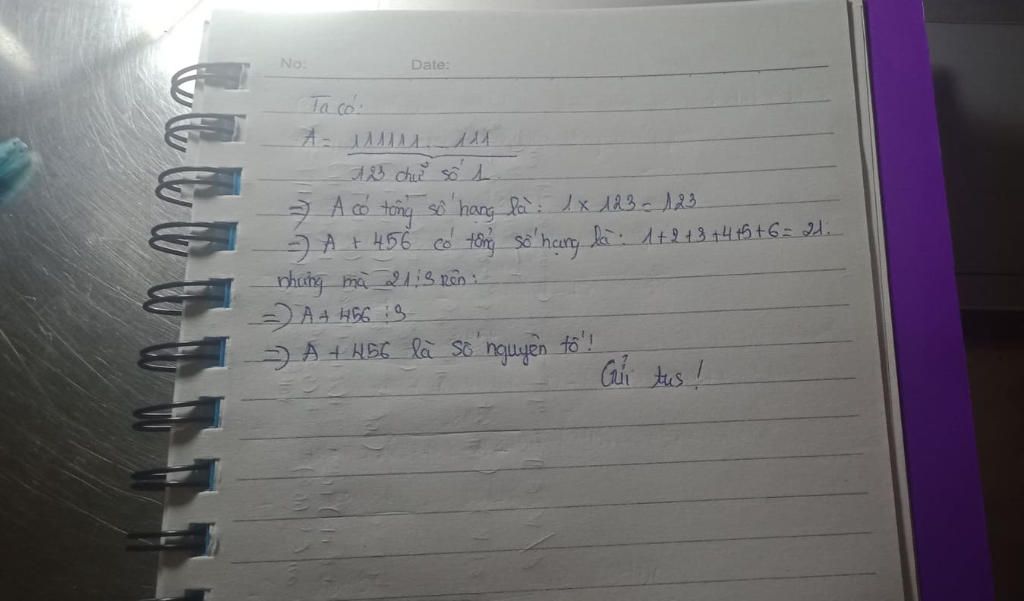 No: Date:
Ta có:
A = 111111...111
123 chữ số 1
=> A có tổng số hạng là: 1 x 123 = 123
=> A + 456 có tổng số hạng là: 1+2+3+4+5+6 = 21.
nhưng mà 21⋮3 nên:
=> A + 456 ⋮3
=> A + 456 là số nguyên tố!
Gửi tus!